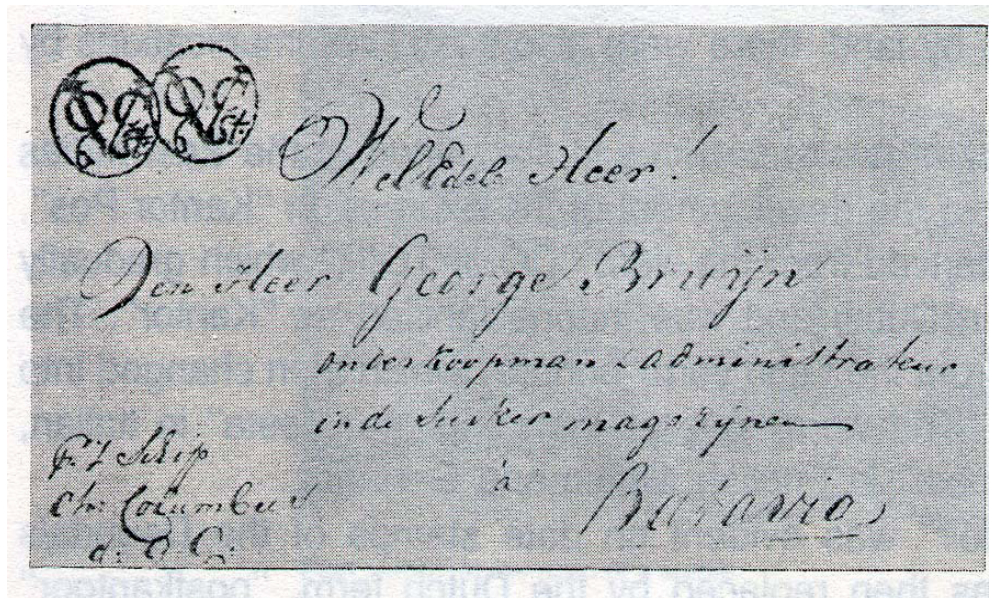 6 St: 6 St:
WelEdele Heer!
Den Heer George Bruijn
onderkoopman & administrateur
in de Suiker magazijnen
à
Batavia
Schip
Chr: Columbus